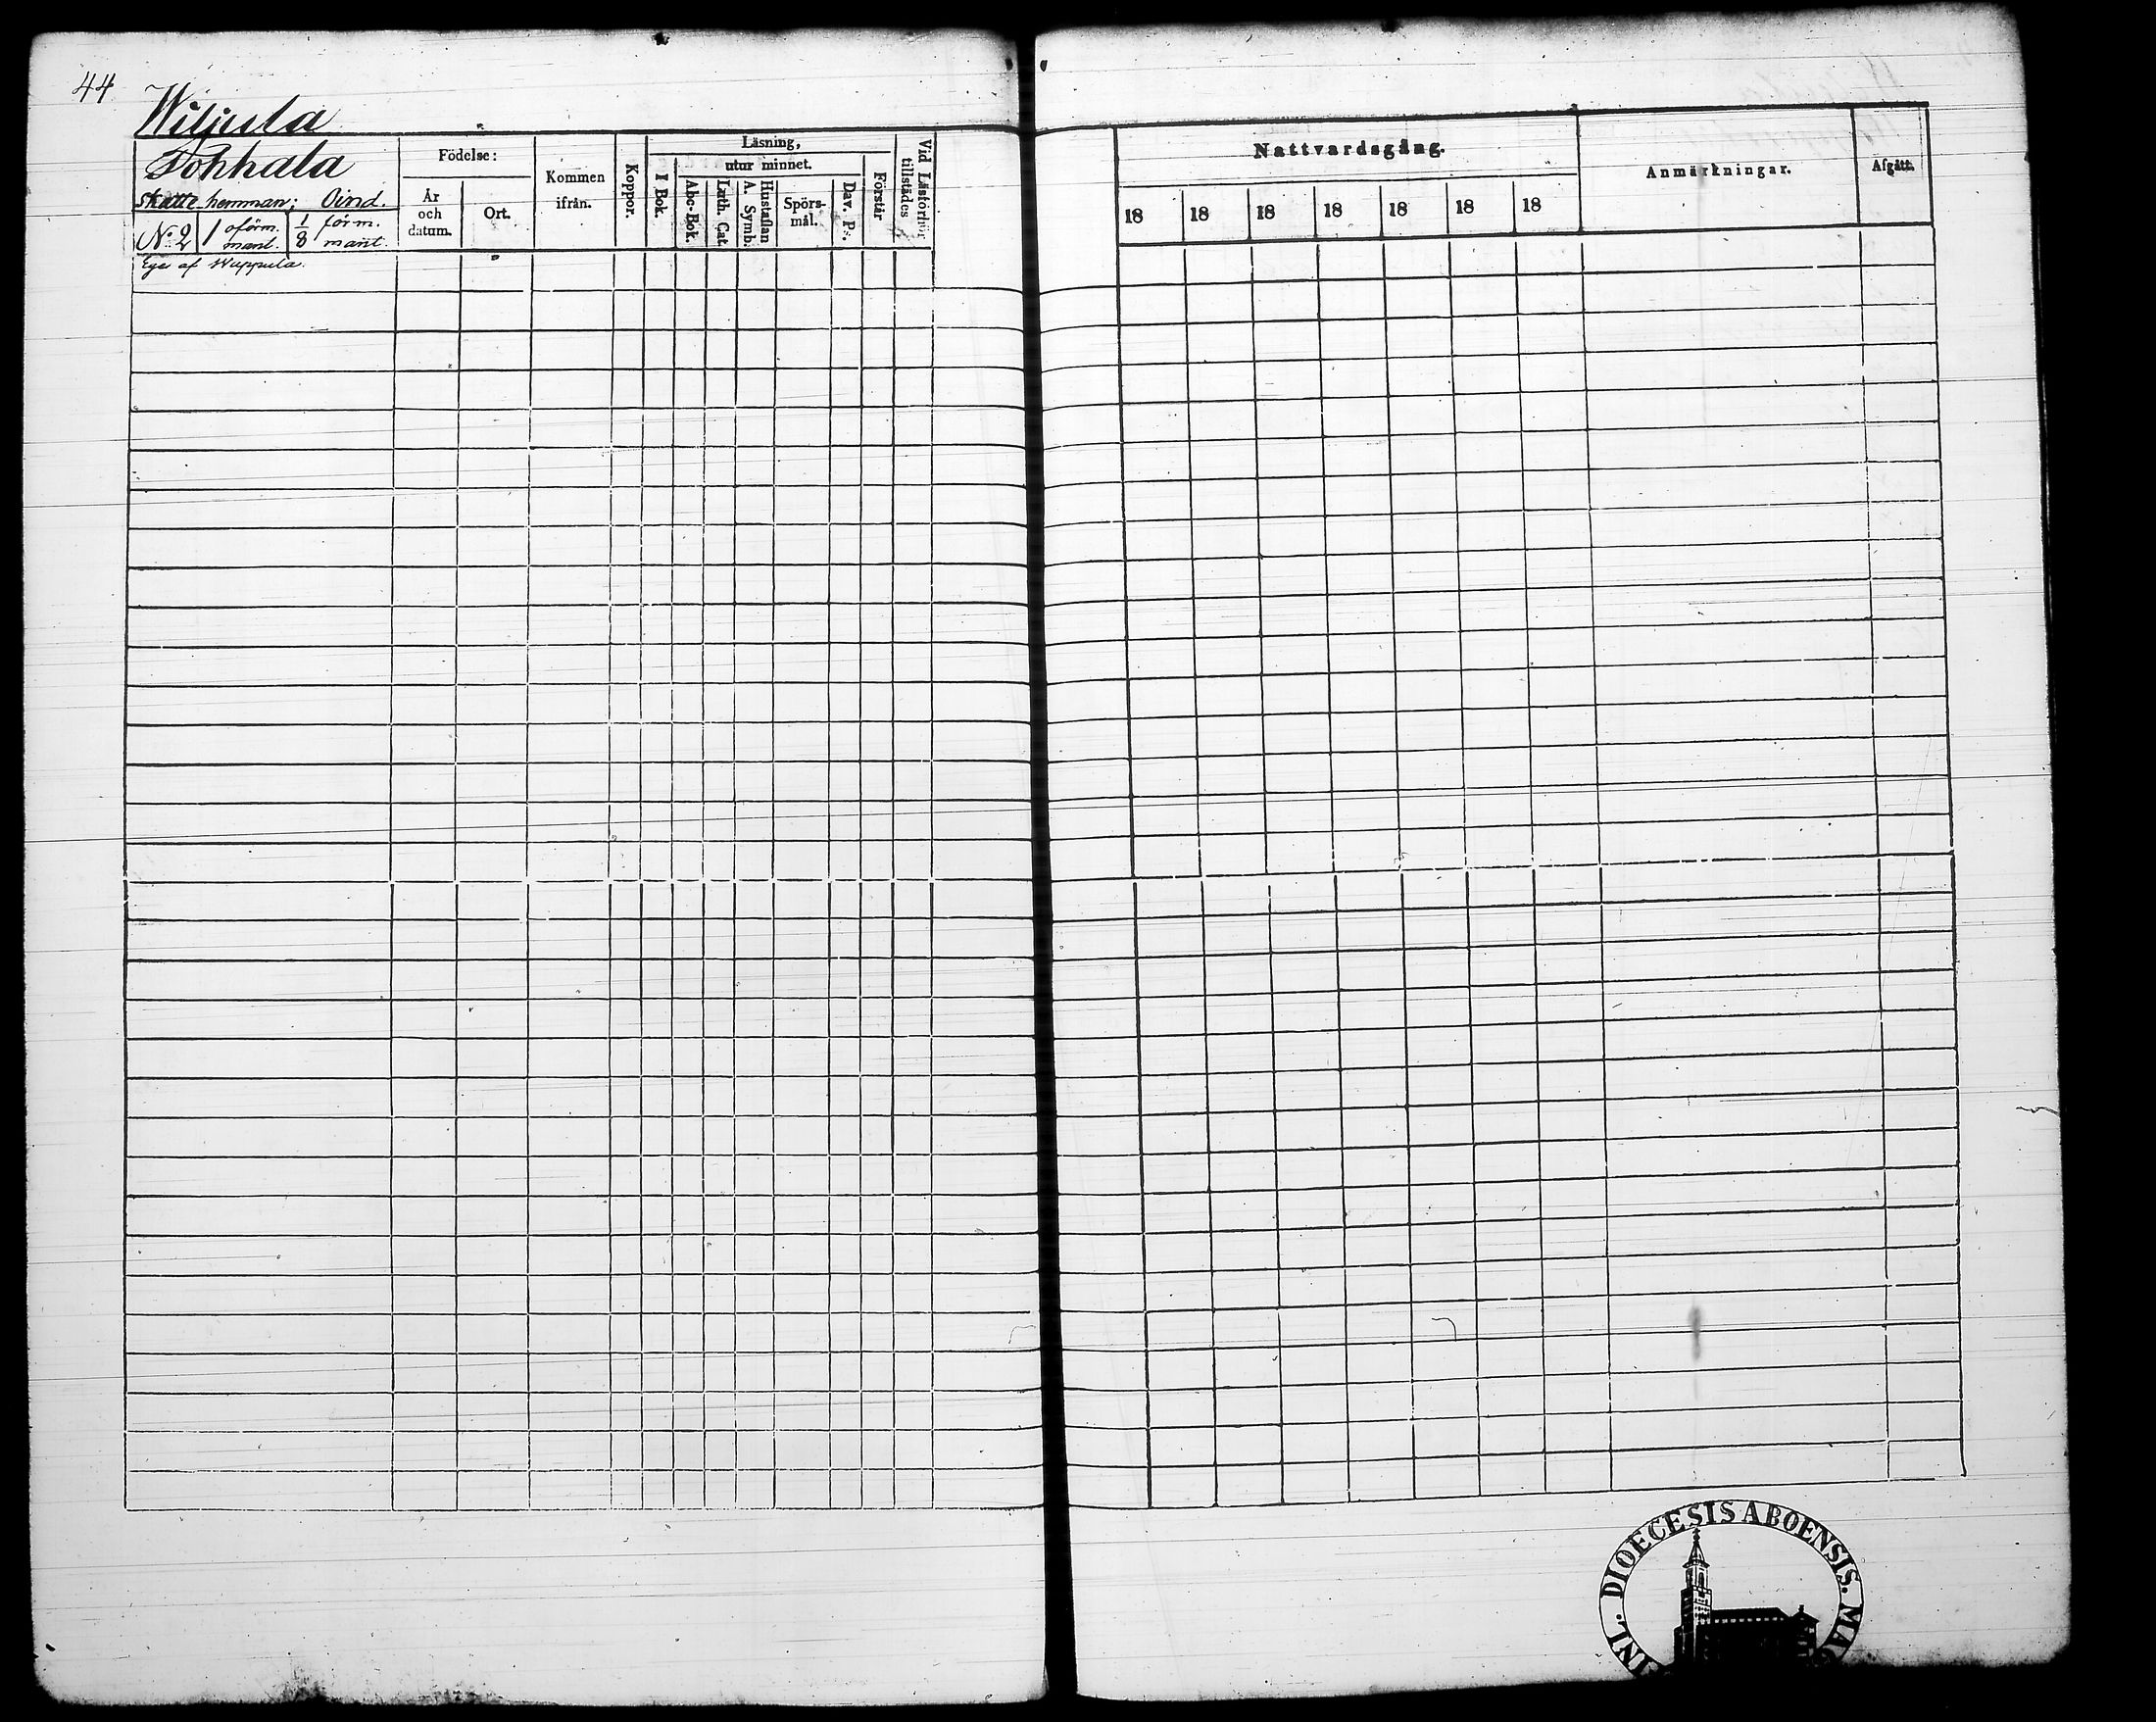 44
Wiljula
Födelse:
Kommen
ifrån.
Koppor.
Läsning,
utur minnet.
I Bok.
Abc-Bok.
Luth. Cat.
Hustaflan
A. Symb.
Spörs-
mål.
Dav. Ps.
Förstår
Vid Läsförhör
tillstädes
År
och
datum.
Ort.
Skatte hemman; Oind.
No. 2 1 oförm. mant. 1/8 förm. mant.
Ege af Wuppula.
Nattvardsgång.
Anmärkningar.
Afgått.
18 18 18 18 18 18 18
DIOECESIS ABOENSIS.